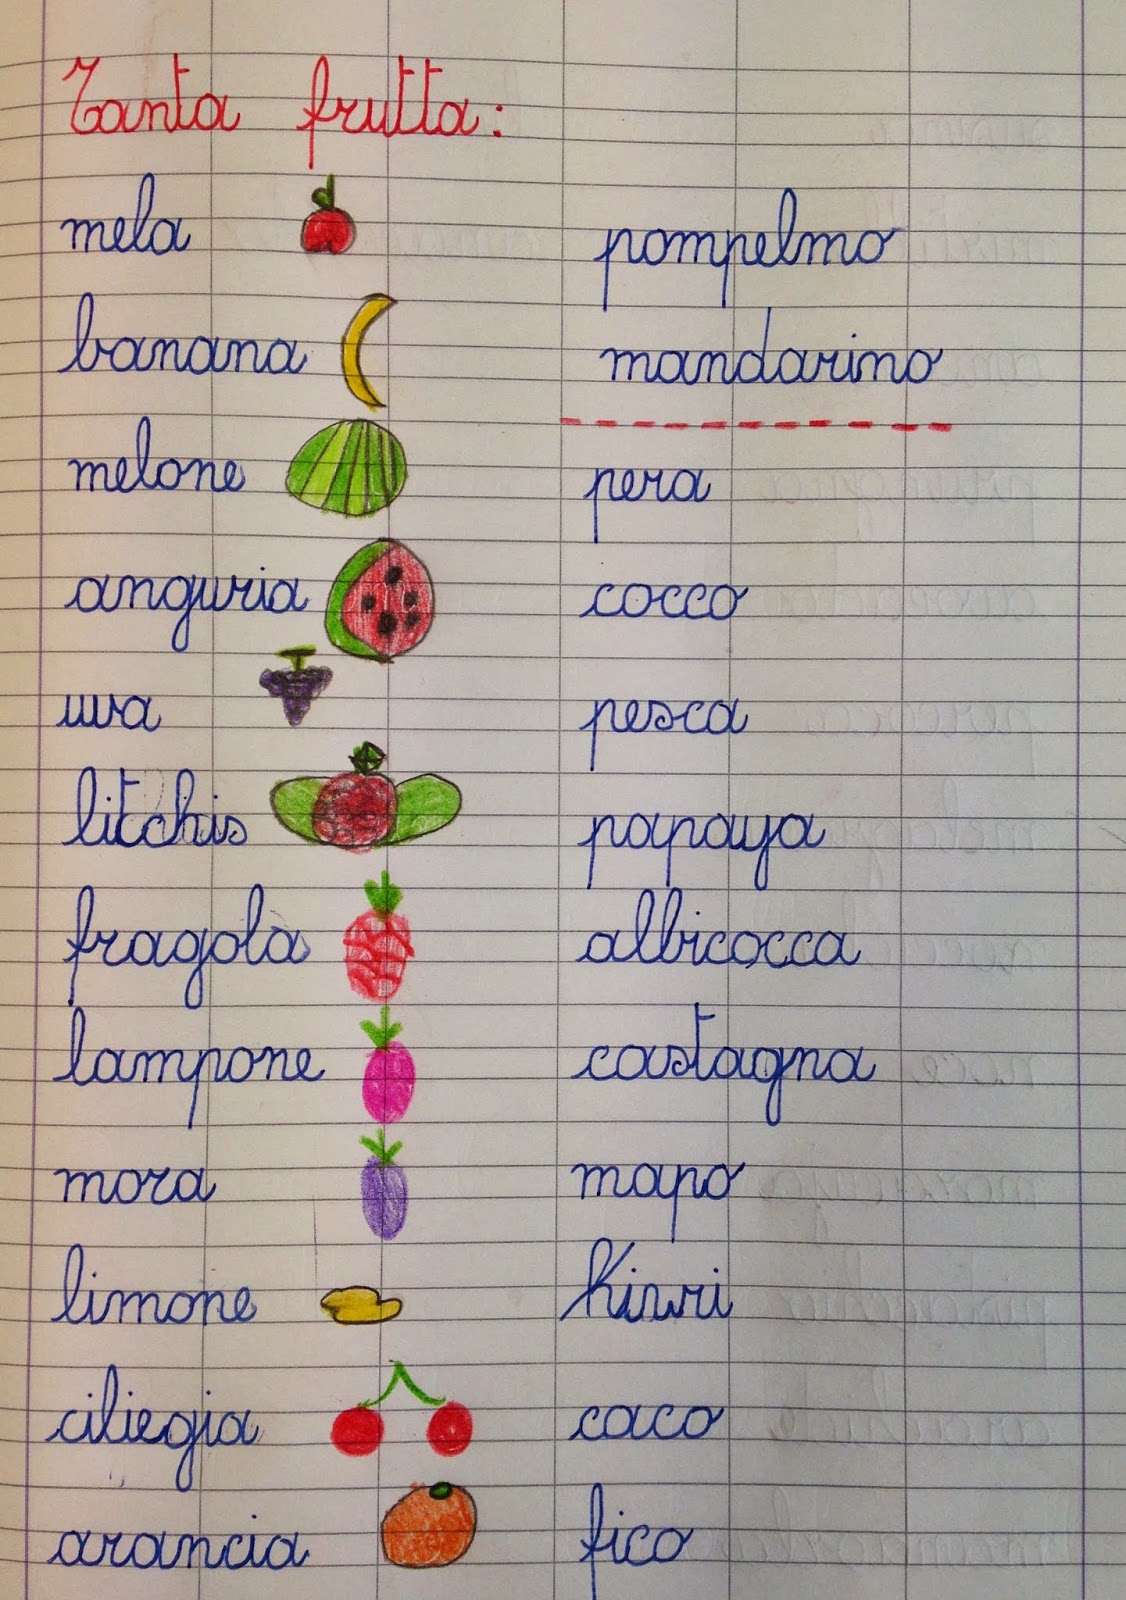 Tanta frutta:
mela
banana
melone
anguria
uva
litchis
fragola
lampone
mora
limone
ciliegia
arancia
pompelmo
mandarino
pera
cocco
pesca
papaya
albicocca
castagna
mapo
Kiwi
caco
fico